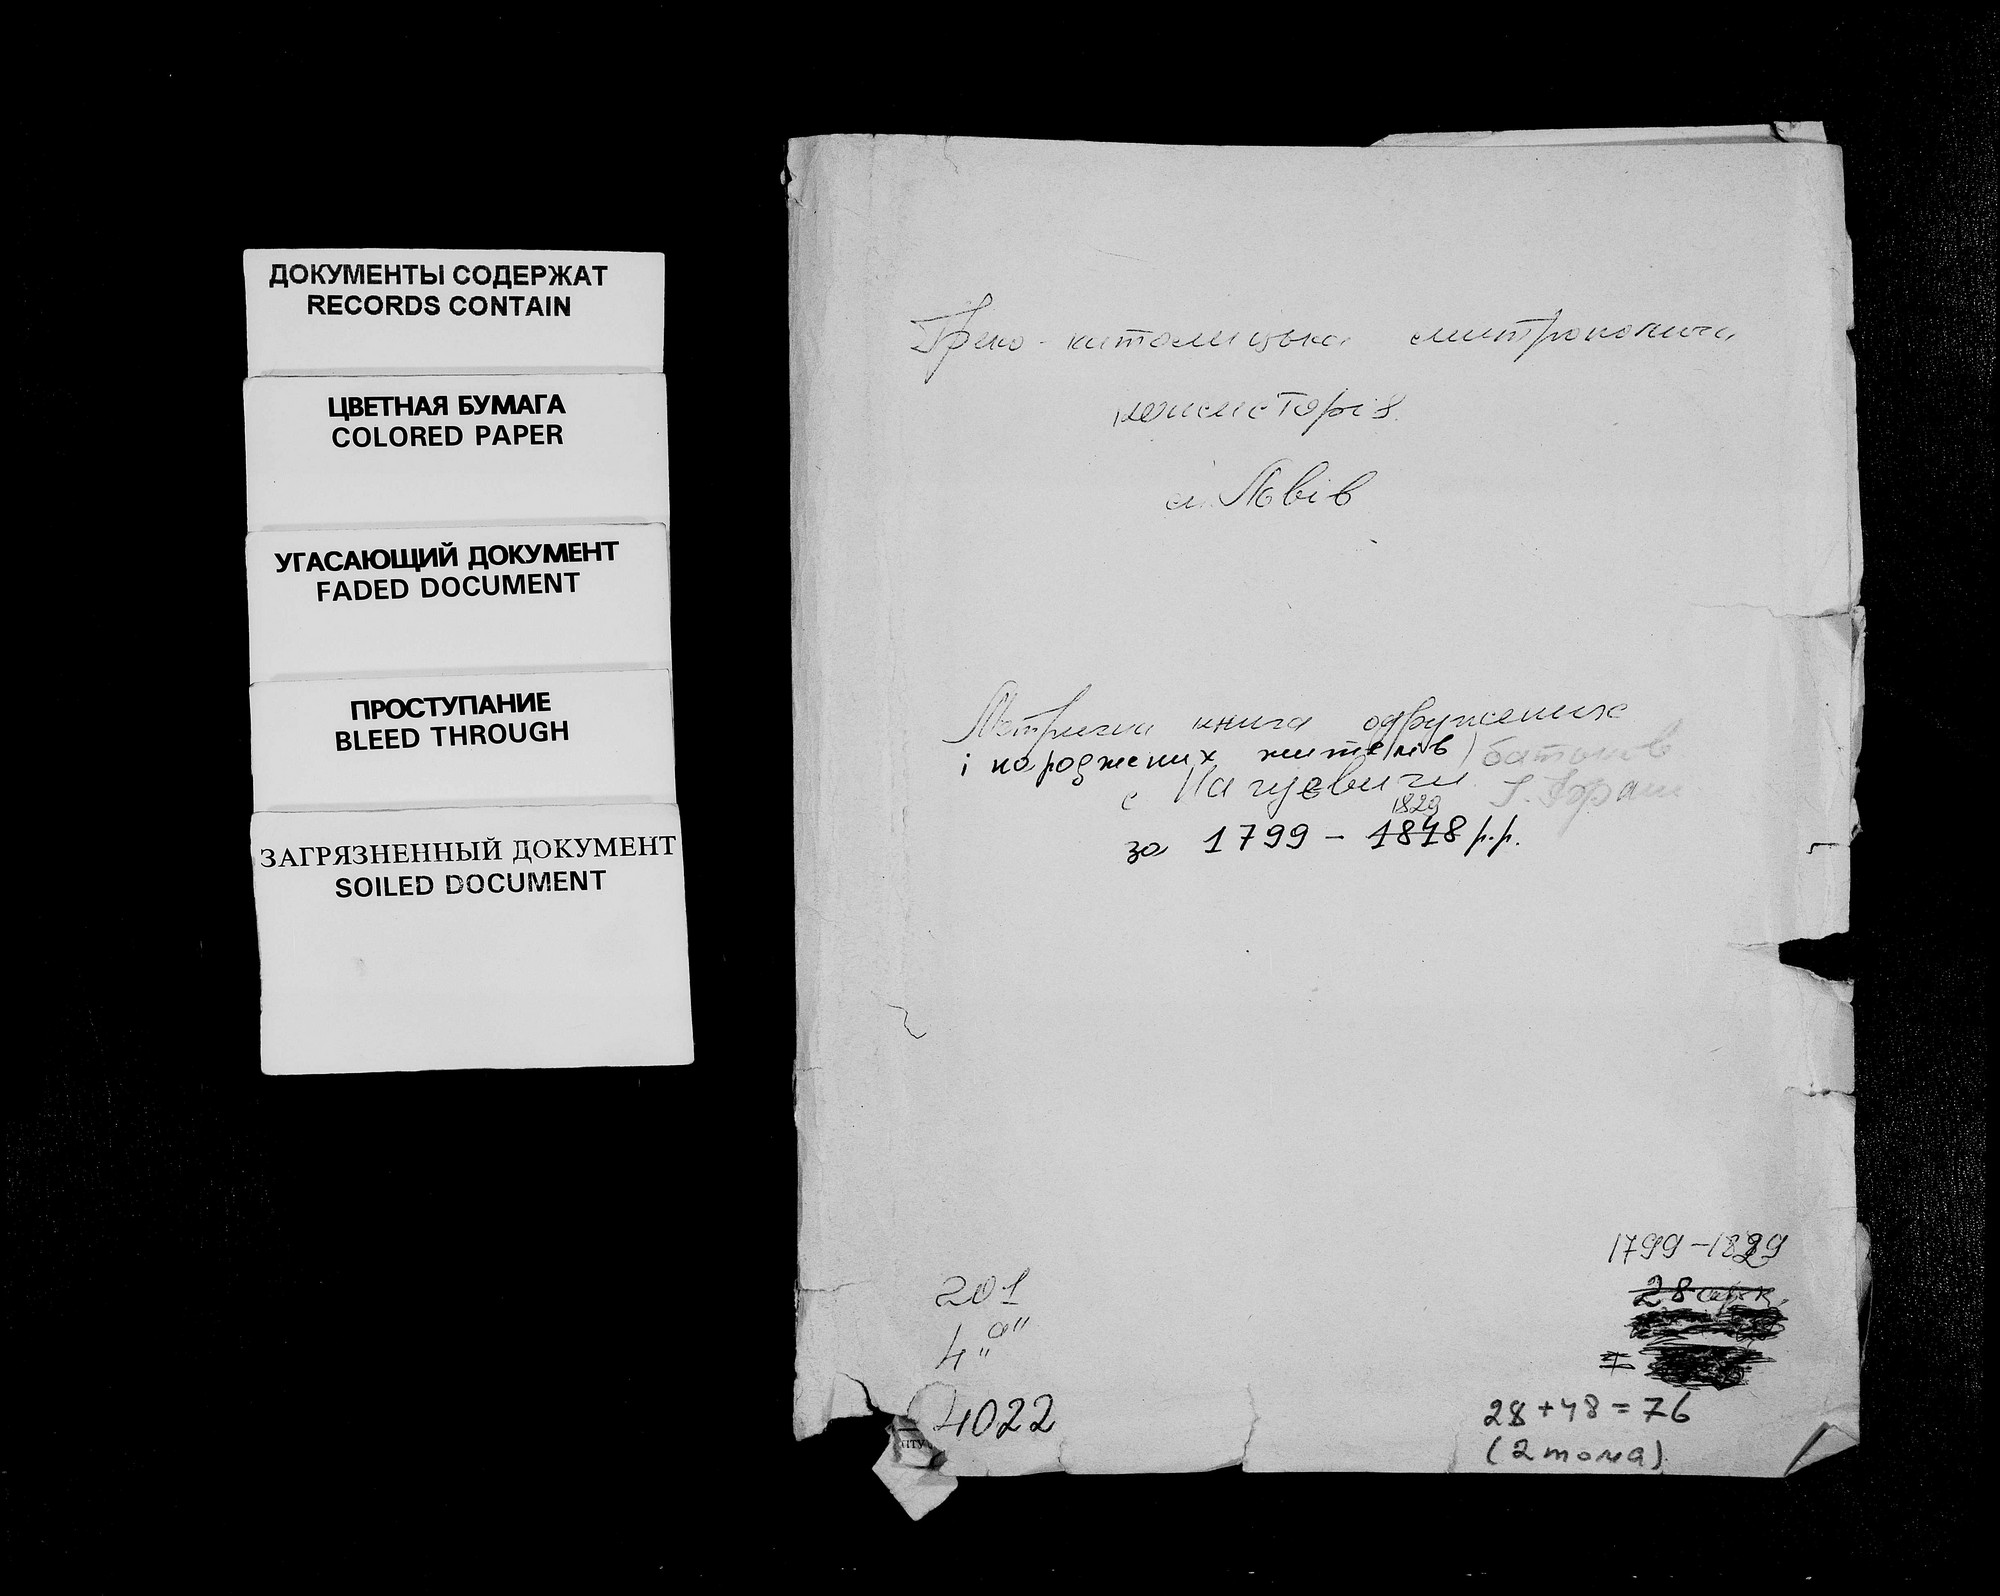 ДОКУМЕНТЫ СОДЕРЖАТ
RECORDS CONTAIN
ЦВЕТНАЯ БУМАГА
COLORED PAPER
УГАСАЮЩИЙ ДОКУМЕНТ
FADED DOCUMENT
ПРОСТУПАНИЕ
BLEED THROUGH
ЗАГРЯЗНЕННЫЙ ДОКУМЕНТ
SOILED DOCUMENT
Греко-католицька митрополича
консисторія
м. Львів
Метрична книга одружених
і народжених жителів) батьків
с Нагуєвичи І. Фран
1829
за 1799 - 1848 р.р.
1799-1829
28 арк.
201
4"а"
4022
28+48=76
(2 тома)